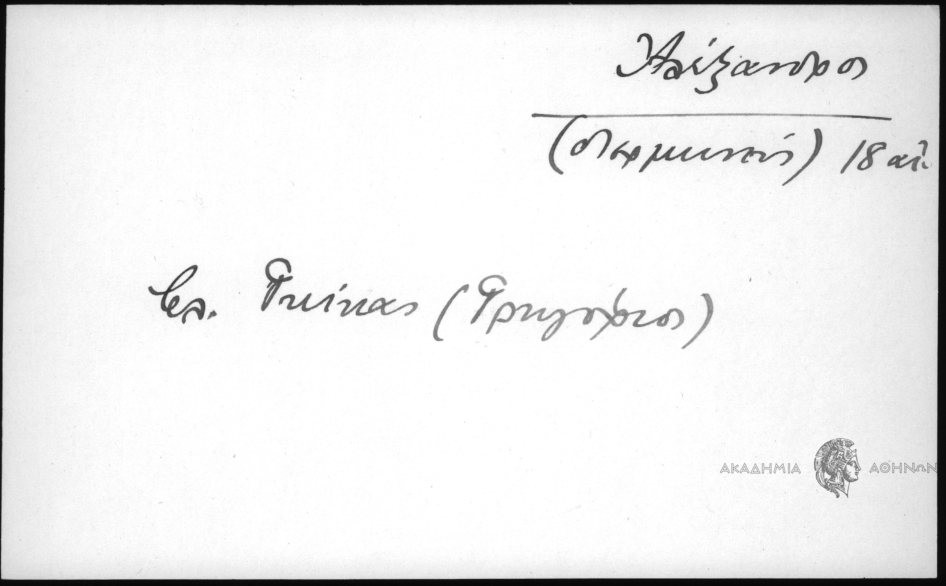 Ἀλέξανδρος
(διερμηνεύς) 18 αἰ.
βλ. Γκίκας (Γρηγόριος)
ΑΚΑΔΗΜΙΑ ΑΘΗΝΩΝ